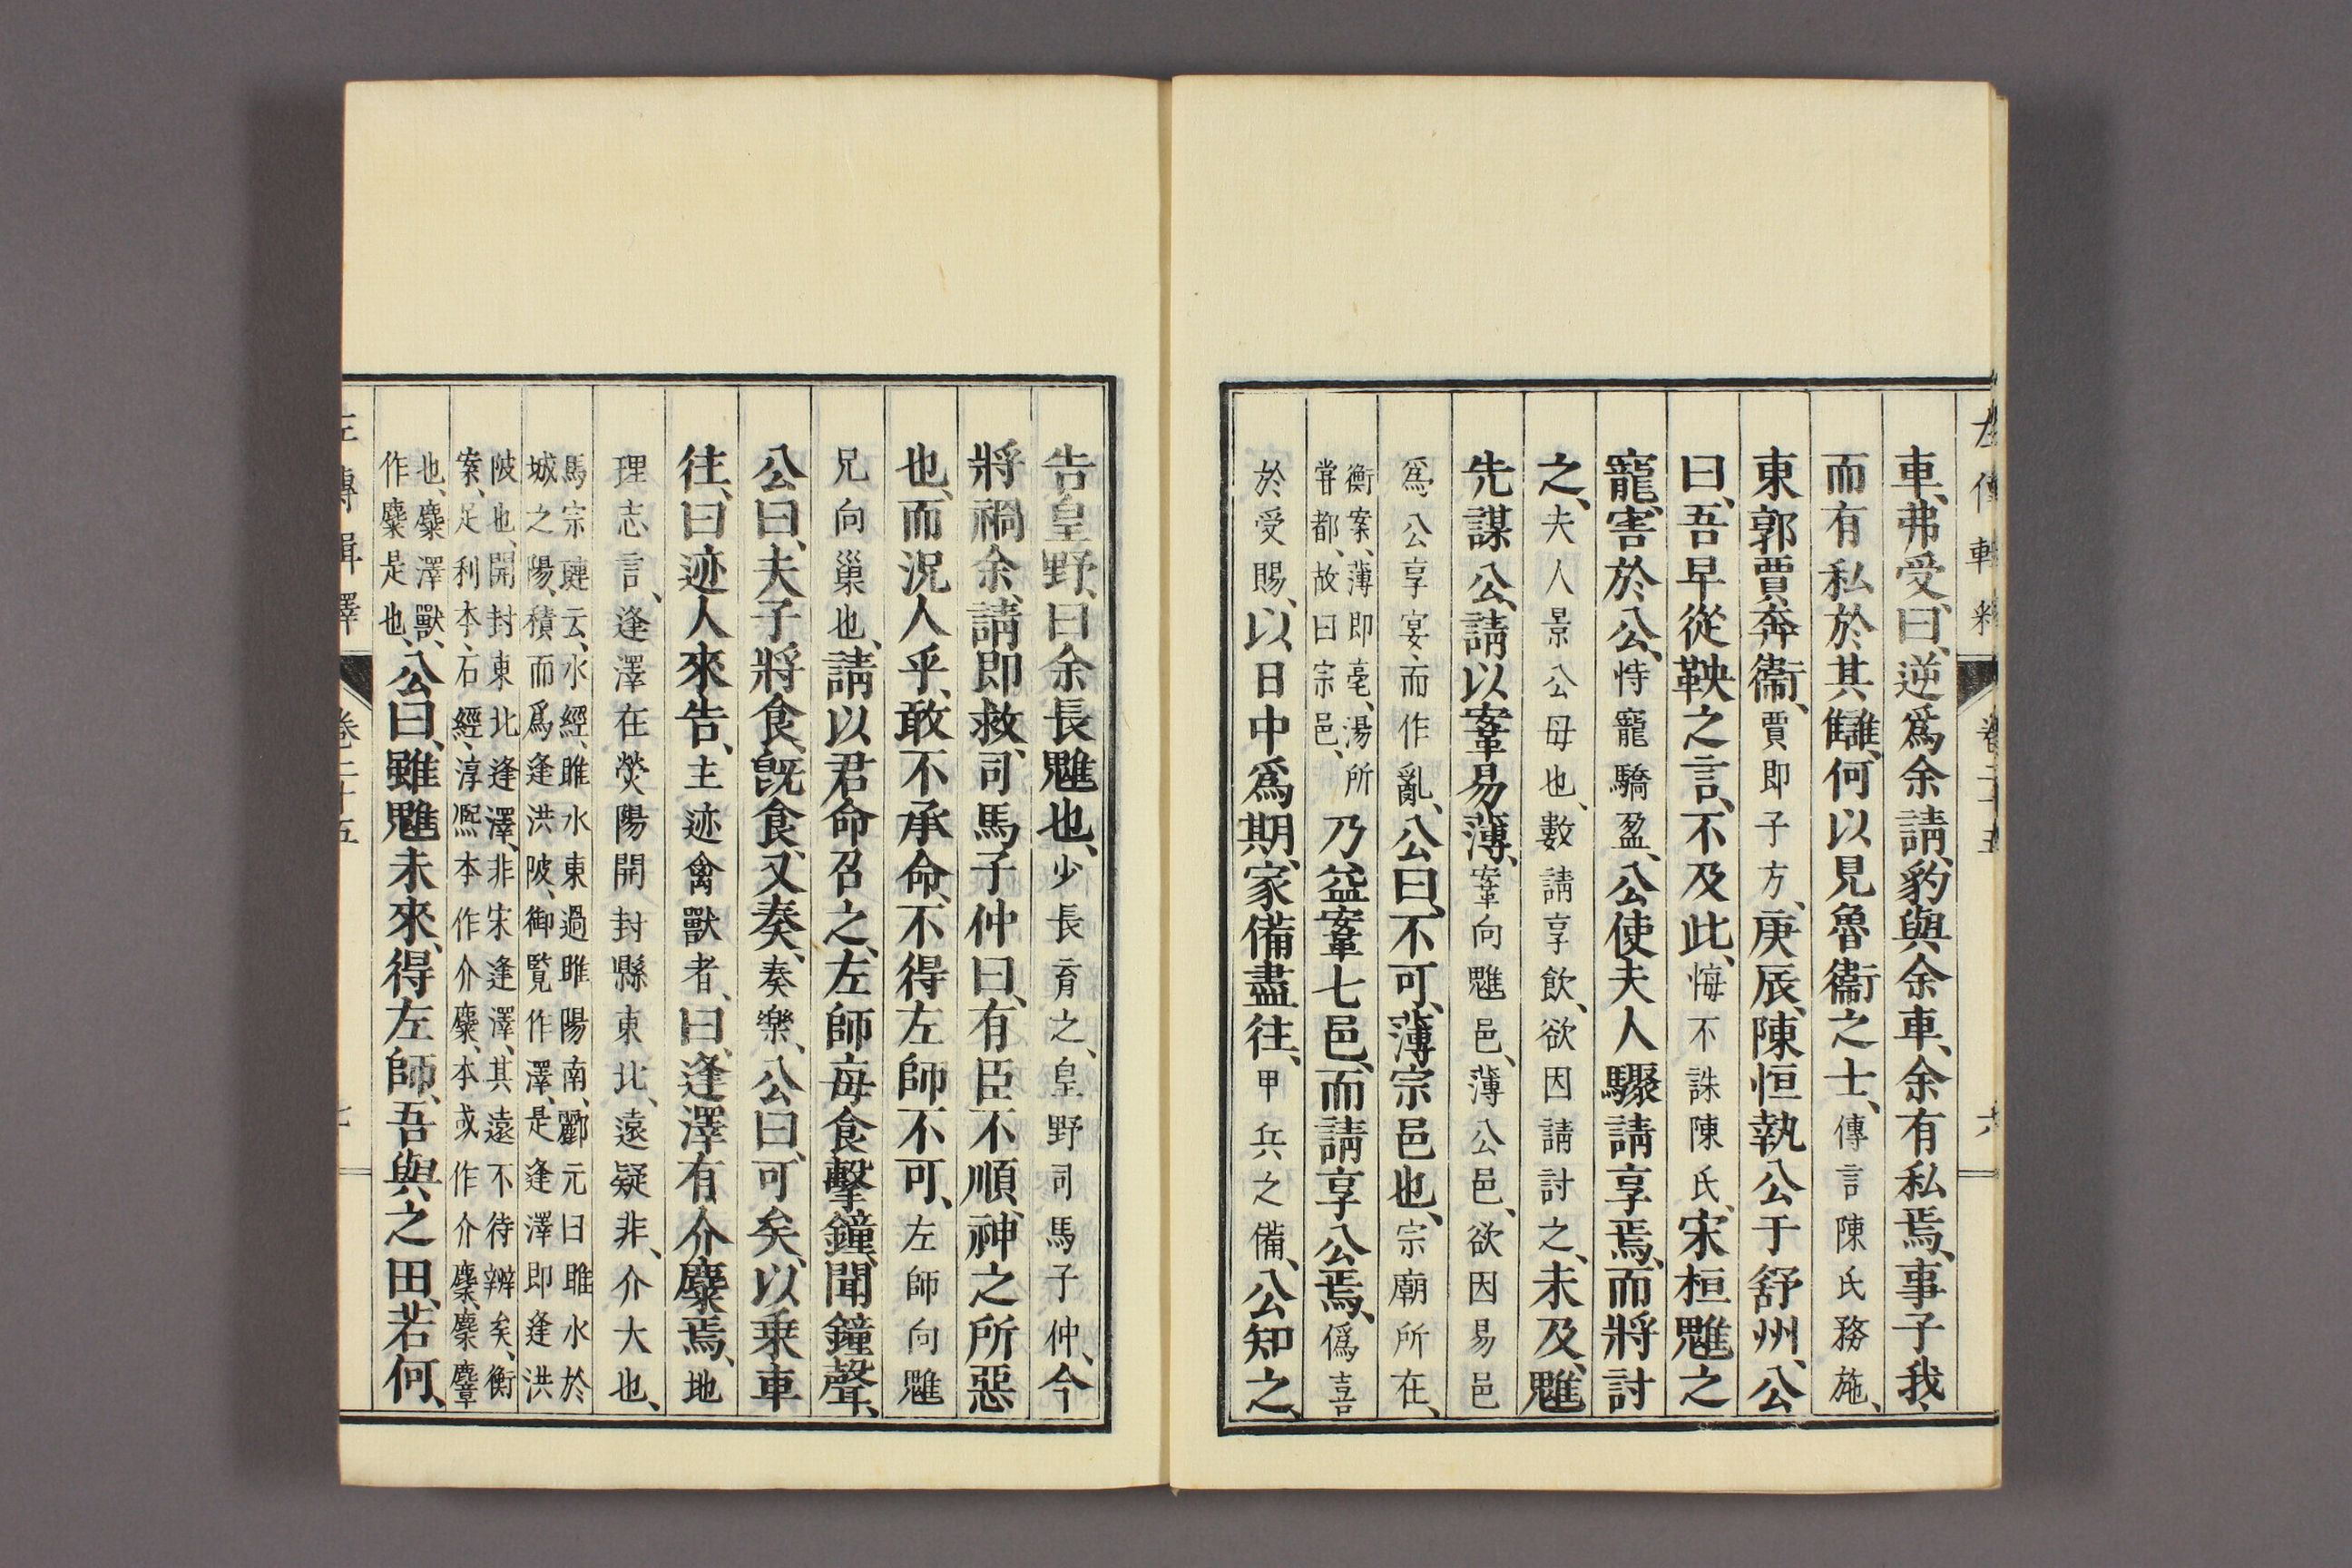 車、弗受、曰、逆爲余請、豹與余車、余有私焉、事子我、
而有私於其讎、何以見魯衞之士、傳言陳氏務施、
東郭賈奔衞、賈即子方、庚辰、陳恒執公于舒州、公
曰、吾早從鞅之言、不及此、悔不誅陳氏、宋桓魋之
寵、害於公、恃寵驕盈、公使夫人驟請享焉、而將討
之、夫人景公母也、數請享飮、欲因請討之、未及、魋
先謀公、請以鞌易薄、鞌向魋邑、薄公邑、欲因易邑
爲公享宴、而作亂、公曰、不可、薄宗邑也、宗廟所在、
衡案、薄即亳、湯所
甞都、故曰宗邑、
乃益鞌七邑、而請享公焉、僞喜
於受賜、以日中爲期、家備盡往、甲兵之備、公知之、
告皇野、曰余長魋也、少長育之、皇野司馬子仲、今
將禍余、請即救、司馬子仲曰、有臣不順、神之所惡
也、而況人乎、敢不承命、不得左師不可、左師向魋
兄向巢也、請以君命召之、左師每食擊鐘、聞鐘聲、
公曰、夫子將食、旣食、又奏、奏樂、公曰、可矣、以乗車
往、曰、迹人來告、主迹禽獸者、曰、逢澤有介麋焉、地
理志言、逢澤在熒陽開封縣東北、遠疑非、介大也、
馬宗璉云、水經、睢水東過睢陽南、酈元曰睢水於
城之陽、積而爲逢洪陂、御覧作澤、是逢澤即逢洪
陂也、開封東北逢澤、非宋逢澤、其遠不待辨矣、衡
案、足利本、石經、淳熙本作介麋、本或作介麇、麇麞
也、麋澤獸、
作麋是也、
公曰、雖魋未來、得左師、吾與之田、若何、
左傳輯釋 卷二十五